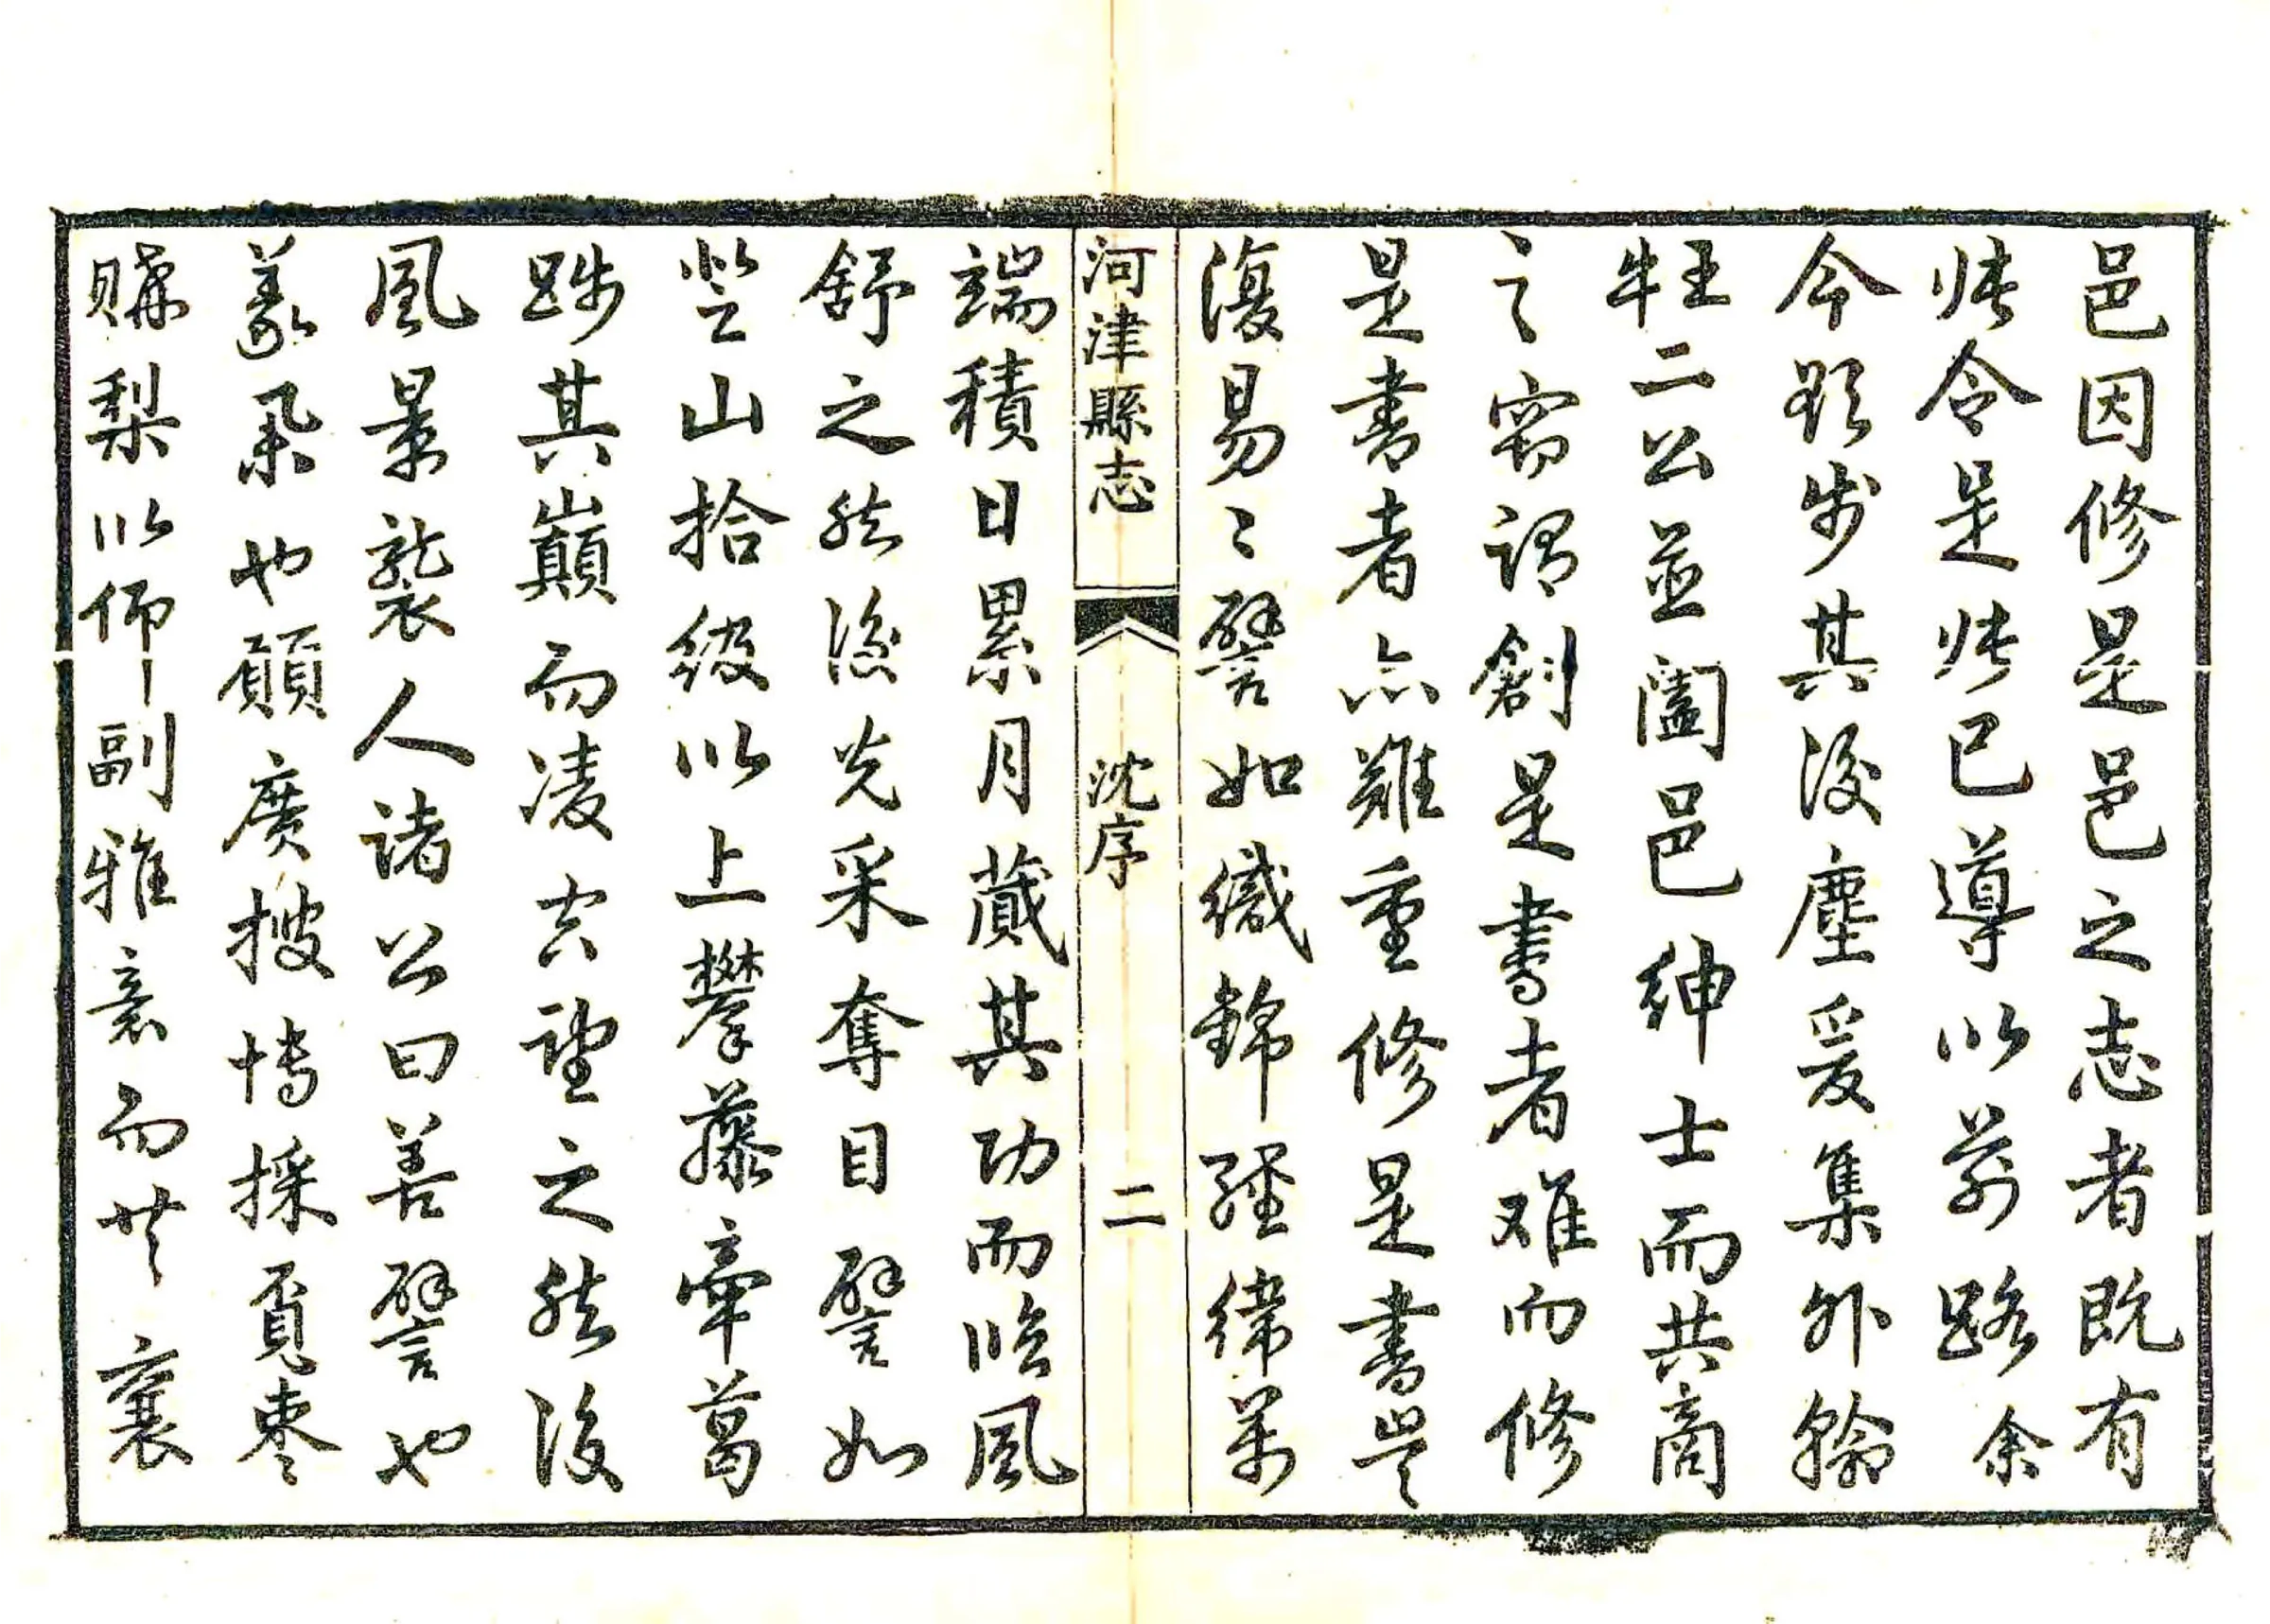 邑因修是邑之志者既有
張令是張已導以前路余
今跂步其後塵爰集外翰
牛王二公並闔邑紳士而共商
之竊謂創是書者难而修
是書者亦難重修是書豈
復易〻譬如織錦經緯萬
河津縣志 沈序 二
端積日累月蕆其功而臨風
舒之然後光采奪目譬如
登山拾級以上攀藤牽葛
陟其巔而凌空望之然後
風景襲人諸公曰善譬也
義也願廣搜博採覓棗
購梨以仰副雅意而共襄